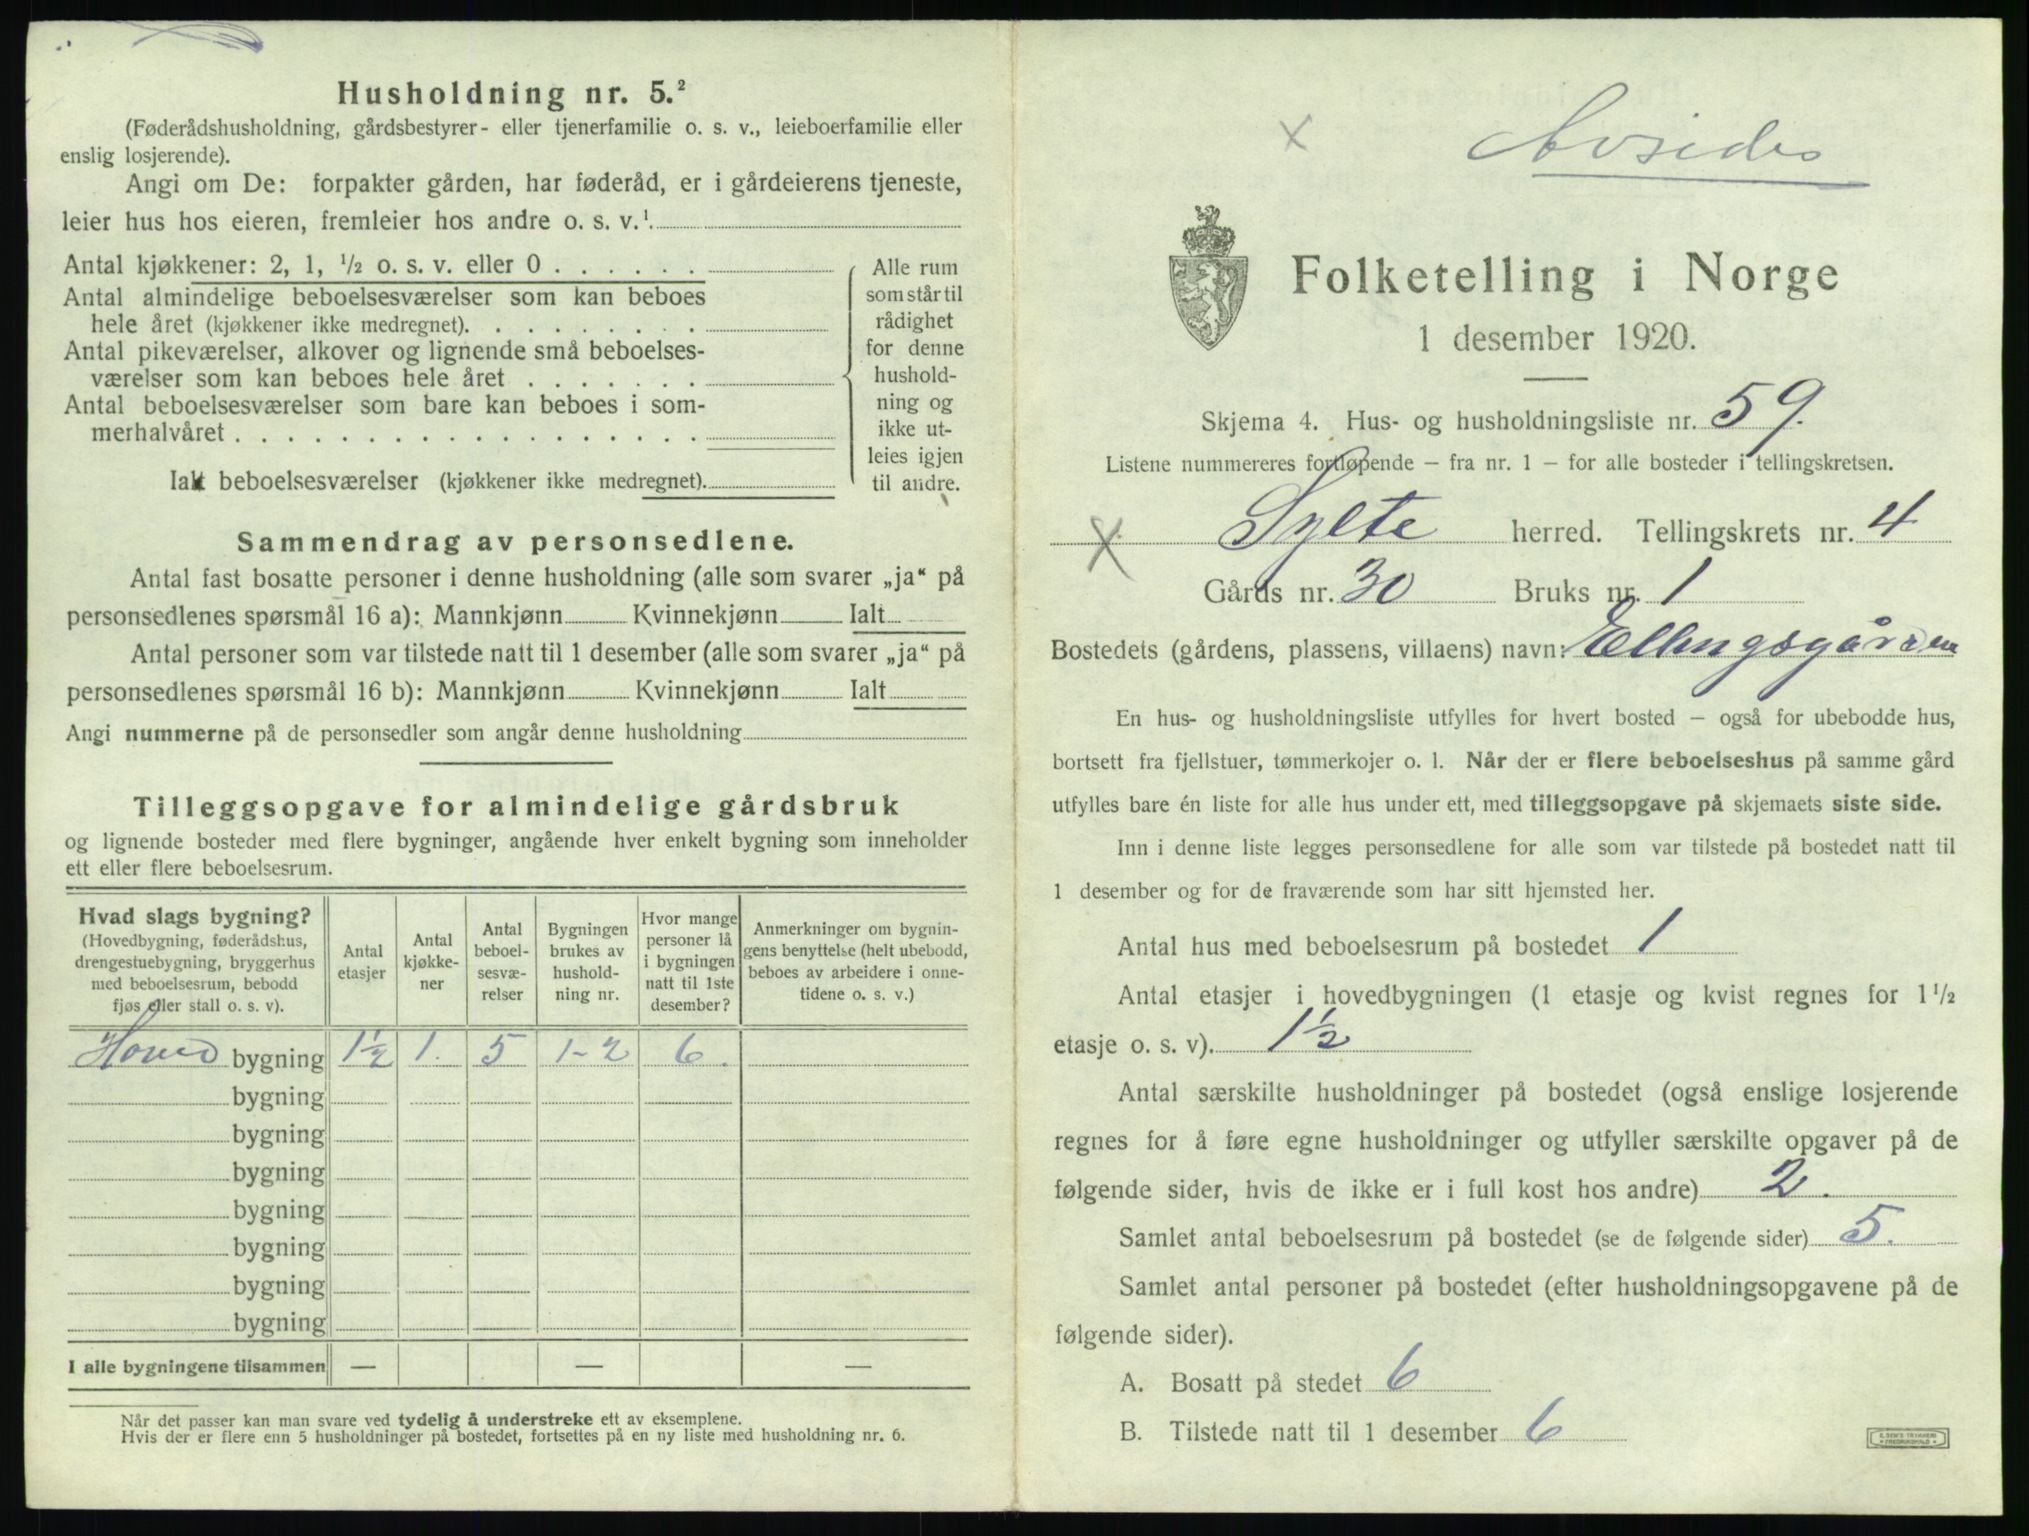 Husholdning nr. 5.²
(Føderådshusholdning, gårdsbestyrer- eller tjenerfamilie o. s. v., leieboerfamilie eller
enslig losjerende).
Angi om De: forpakter gården, har føderåd, er i gårdeierens tjeneste,
leier hus hos eieren, fremleier hos andre o. s. v.¹
Antal kjøkkener: 2, 1, ½ o. s. v. eller 0
Antal almindelige beboelsesværelser som kan beboes
hele året (kjøkkener ikke medregnet).
Antal pikeværelser, alkover og lignende små beboelses-
værelser som kan beboes hele året
Antal beboelsesværelser som bare kan beboes i som-
merhalvåret
Ialt beboelsesværelser (kjøkkener ikke medregnet).
Alle rum
som står til
rådighet
for denne
hushold-
ning og
ikke ut-
leies igjen
til andre.
Sammendrag av personsedlene.
Antal fast bosatte personer i denne husholdning (alle som svarer „ja“ på
personsedlenes spørsmål 16 a): Mannkjønn Kvinnekjønn Ialt
Antal personer som var tilstede natt til 1 desember (alle som svarer „ja“ på
personsedlenes spørsmål 16 b): Mannkjønn Kvinnekjønn Ialt
Angi nummerne på de personsedler som angår denne husholdning
Tilleggsopgave for almindelige gårdsbruk
og lignende bosteder med flere bygninger, angående hver enkelt bygning som inneholder
ett eller flere beboelsesrum.
Hvad slags bygning?
(Hovedbygning, føderådshus,
drengestuebygning, bryggerhus
med beboelsesrum, bebodd
fjøs eller stall o. s. v).
Antal
etasjer
Antal
kjøkke-
ner
Antal
beboel-
sesvæ-
relser
Bygningen
brukes av
hushold-
ning nr.
Hvor mange
personer lå
i bygningen
natt til 1ste
desember?
Anmerkninger om bygnin-
gens benyttelse (helt ubebodd,
beboes av arbeidere i onne-
tidene o. s. v.)
Hoved bygning 1½ 1. 5 1-2 6.
bygning
bygning
bygning
bygning
bygning
bygning
bygning
I alle bygningene tilsammen — — —
Når det passer kan man svare ved tydelig å understreke ett av eksemplene.
Hvis der er flere enn 5 husholdninger på bostedet, fortsettes på en ny liste med husholdning nr. 6.
x
Folketelling i Norge
1 desember 1920.
Skjema 4. Hus- og husholdningsliste nr. 59.
Listene nummereres fortløpende – fra nr. 1 – for alle bosteder i tellingskretsen.
x Sylte herred. Tellingskrets nr. 4
Gårds nr. 30 Bruks nr. 1
Bostedets (gårdens, plassens, villaens) navn: Ellingsgården
En hus- og husholdningsliste utfylles for hvert bosted – også for ubebodde hus,
bortsett fra fjellstuer, tømmerkojer o. l. Når der er flere beboelseshus på samme gård
utfylles bare én liste for alle hus under ett, med tilleggsopgave på skjemaets siste side.
Inn i denne liste legges personsedlene for alle som var tilstede på bostedet natt til
1 desember og for de fraværende som har sitt hjemsted her.
Antal hus med beboelsesrum på bostedet 1
Antal etasjer i hovedbygningen (1 etasje og kvist regnes for 1½
etasje o. s. v). 1½
Antal særskilte husholdninger på bostedet (også enslige losjerende
regnes for å føre egne husholdninger og utfyller særskilte opgaver på de
følgende sider, hvis de ikke er i full kost hos andre) 2.
Samlet antal beboelsesrum på bostedet (se de følgende sider) 5.
Samlet antal personer på bostedet (efter husholdningsopgavene på de
følgende sider).
A. Bosatt på stedet 6
B. Tilstede natt til 1 desember 6